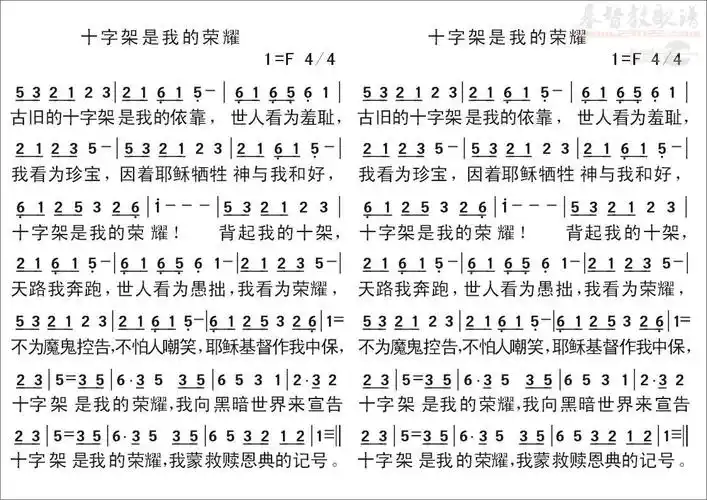 基督教歌谱
十字架是我的荣耀
1=F 4/4
5 3 2 1 2 3 | 2 1 6 1 5 - | 6 1 6 5 6 1 |
古旧的十字架是我的依靠， 世人看为羞耻，
2 1 2 3 5 - | 5 3 2 1 2 3 | 2 1 6 1 5 - |
我看为珍宝，因着耶稣牺牲 神与我和好，
6 1 2 5 3 2 6 | i - - - | 5 3 2 1 2 3 |
十字架是我的荣耀！ 背起我的十架，
2 1 6 1 5 - | 6 1 6 5 6 1 - | 2 1 2 3 5 - |
天路我奔跑，世人看为愚拙，我看为荣耀，
5 3 2 1 2 3 | 2 1 6 1 5 - | 6 1 2 5 3 2 6 | 1=
不为魔鬼控告，不怕人嘲笑，耶稣基督作我中保，
2 3 | 5=3 5 | 6·3 5 3 5 | 6 5 3 1 | 2·3 2
十字架 是我的荣耀，我向黑暗世界来宣告
2 3 | 5=3 5 | 6·3 5 3 5 | 6 5 3 1 2 | 1=‖
十字架 是我的荣耀，我蒙救赎恩典的记号。
十字架是我的荣耀
1=F 4/4
5 3 2 1 2 3 | 2 1 6 1 5 - | 6 1 6 5 6 1 |
古旧的十字架是我的依靠， 世人看为羞耻，
2 1 2 3 5 - | 5 3 2 1 2 3 | 2 1 6 1 5 - |
我看为珍宝，因着耶稣牺牲 神与我和好，
6 1 2 5 3 2 6 | i - - - | 5 3 2 1 2 3 |
十字架是我的荣耀！ 背起我的十架，
2 1 6 1 5 - | 6 1 6 5 6 1 - | 2 1 2 3 5 - |
天路我奔跑，世人看为愚拙，我看为荣耀，
5 3 2 1 2 3 | 2 1 6 1 5 - | 6 1 2 5 3 2 6 | 1=
不为魔鬼控告，不怕人嘲笑，耶稣基督作我中保，
2 3 | 5=3 5 | 6·3 5 3 5 | 6 5 3 1 | 2·3 2
十字架 是我的荣耀，我向黑暗世界来宣告
2 3 | 5=3 5 | 6·3 5 3 5 | 6 5 3 1 2 | 1=‖
十字架 是我的荣耀，我蒙救赎恩典的记号。